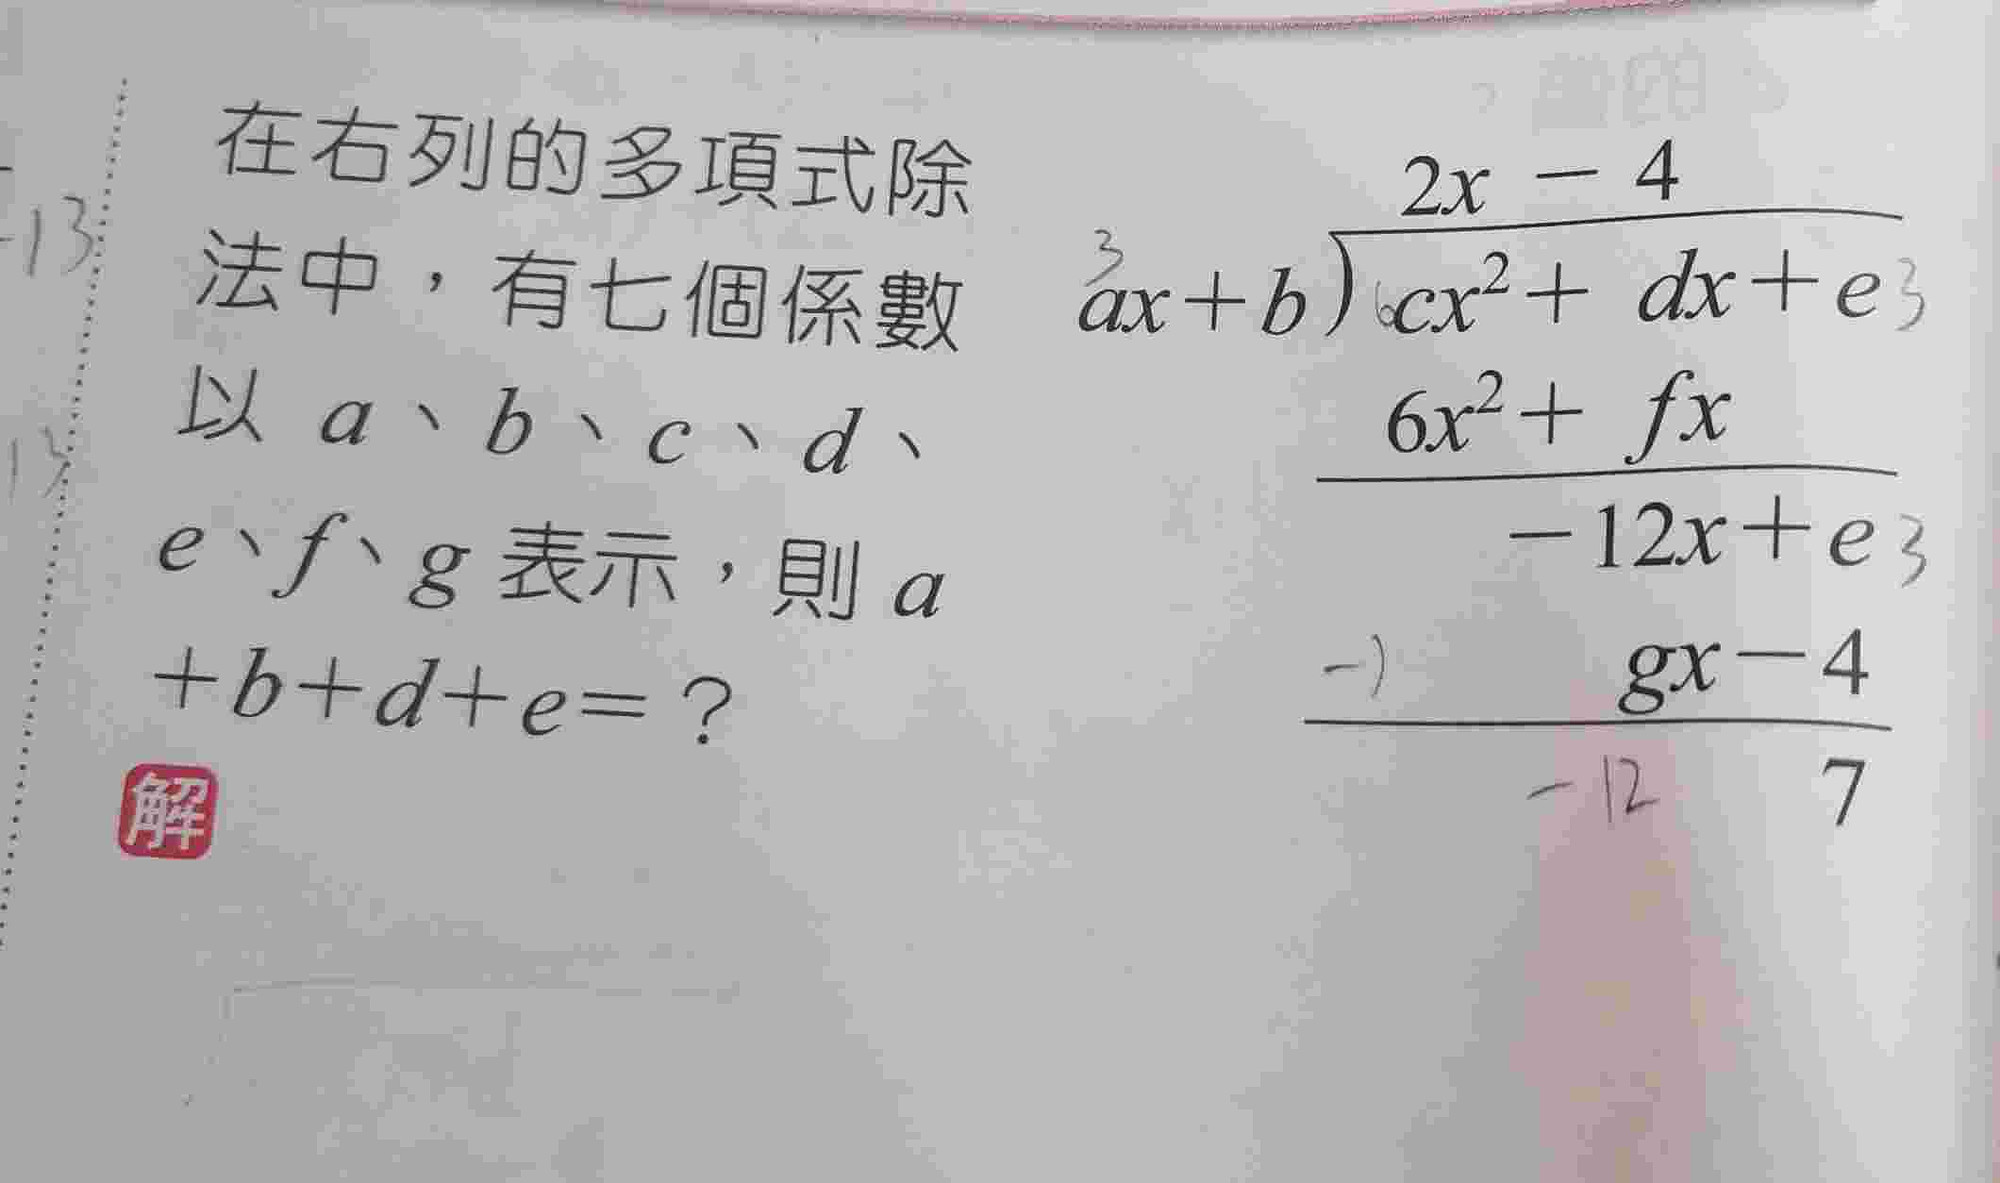 在右列的多項式除
法中，有七個係數
以 a、b、c、d、
e、f、g 表示，則 a
+b+d+e=？
解
2x - 4
3
ax+b)6cx²+ dx+e 3
6x²+ fx
-12x+e 3
-) gx-4
-12 7
-13